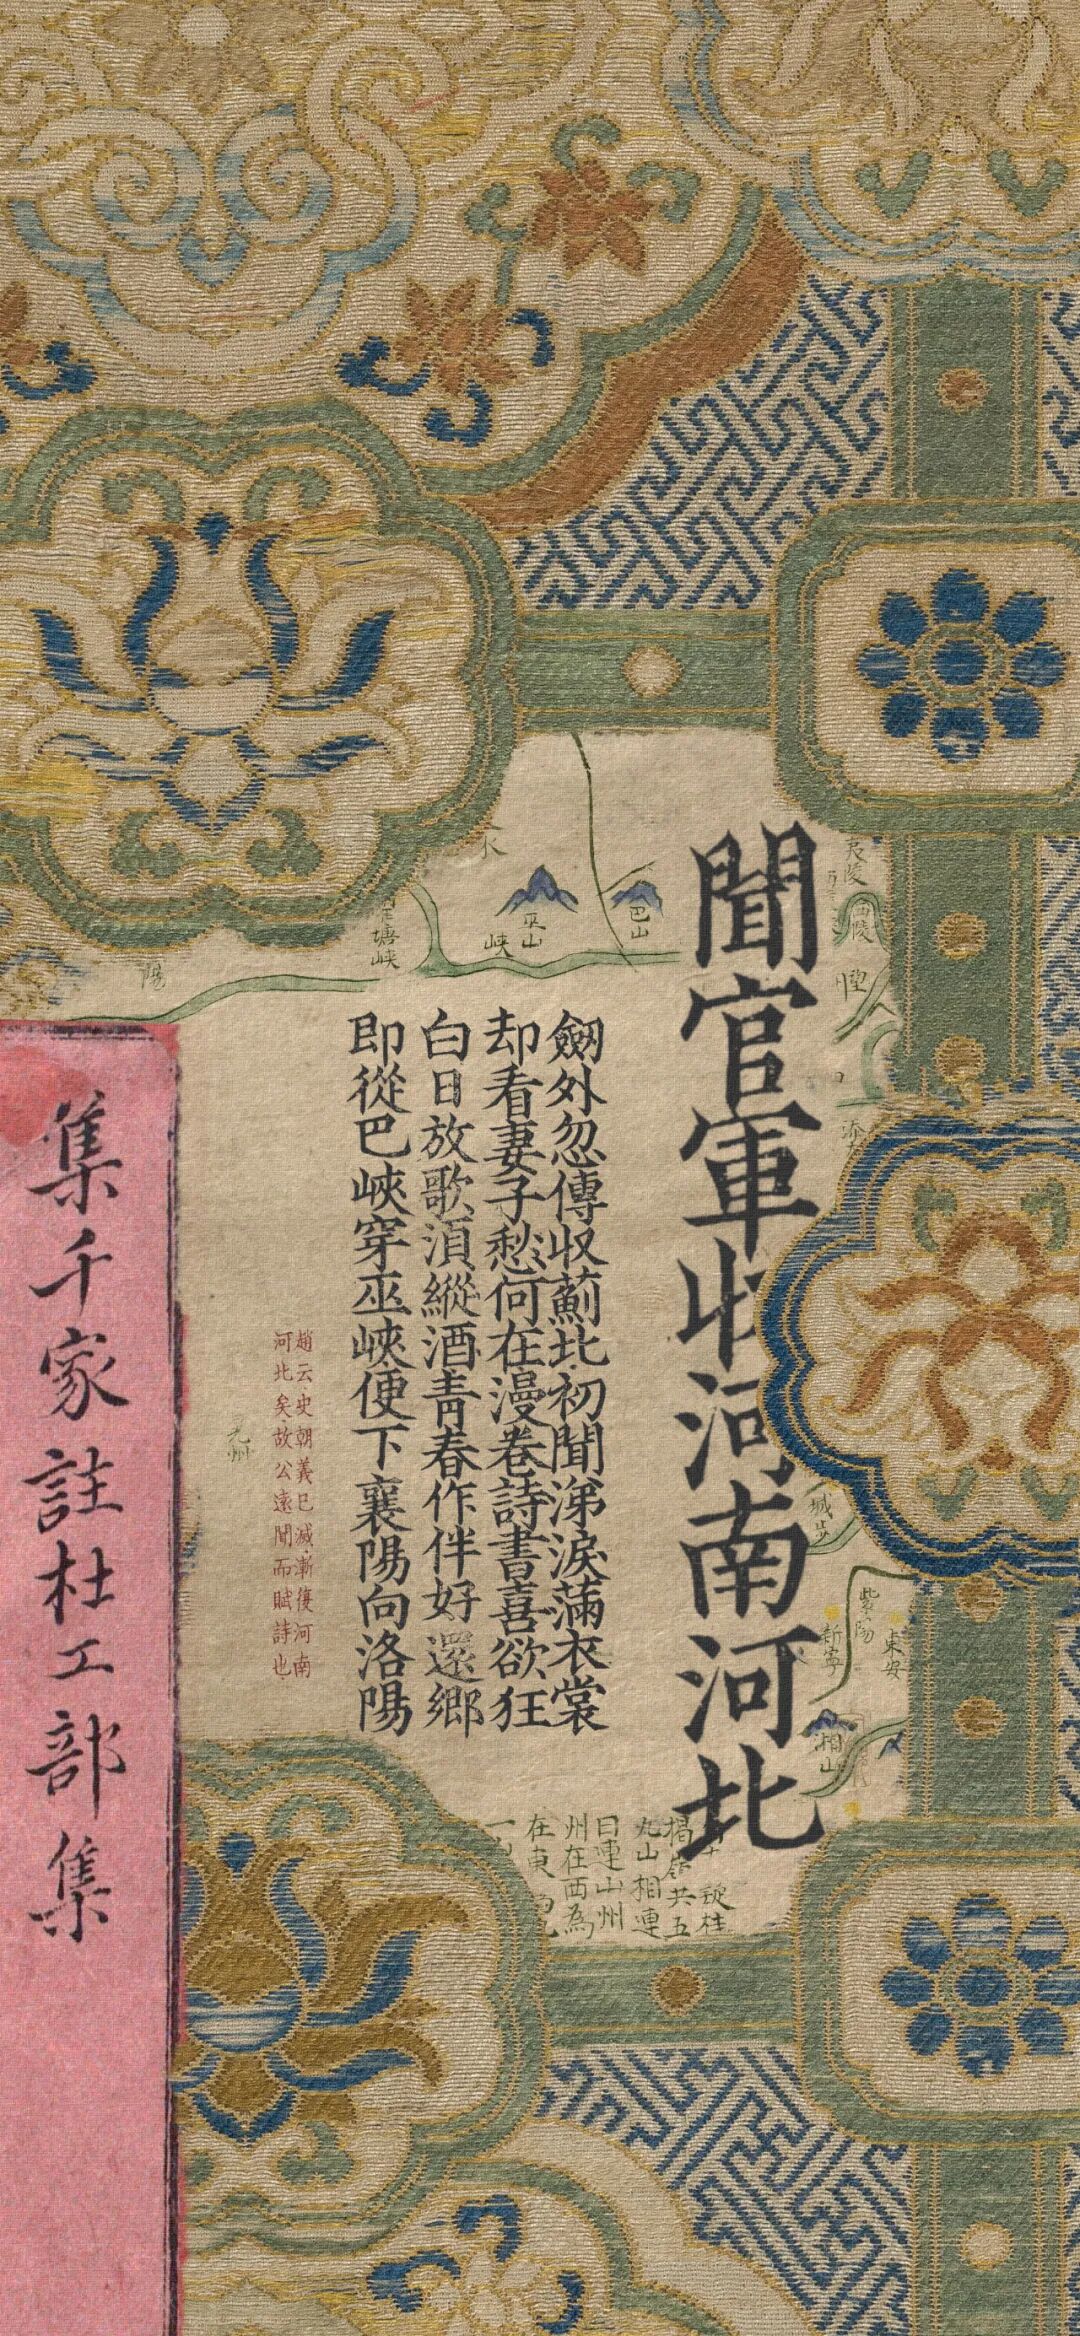 聞官軍收河南河北
劒外忽傳收薊北初聞涕淚滿衣裳
却看妻子愁何在漫卷詩書喜欲狂
白日放歌須縱酒青春作伴好還鄉
即從巴峽穿巫峽便下襄陽向洛陽
趙云史朝義已滅漸復河南
河北矣故公遠聞而賦詩也
集千家註杜工部集
夷陵
西陵
巴山
巫山
峽
塘峽
陽
九州
城步
紫陽
新寧
東安
湘山
桂
共五
九山相連
曰連山州
州在西為
在東